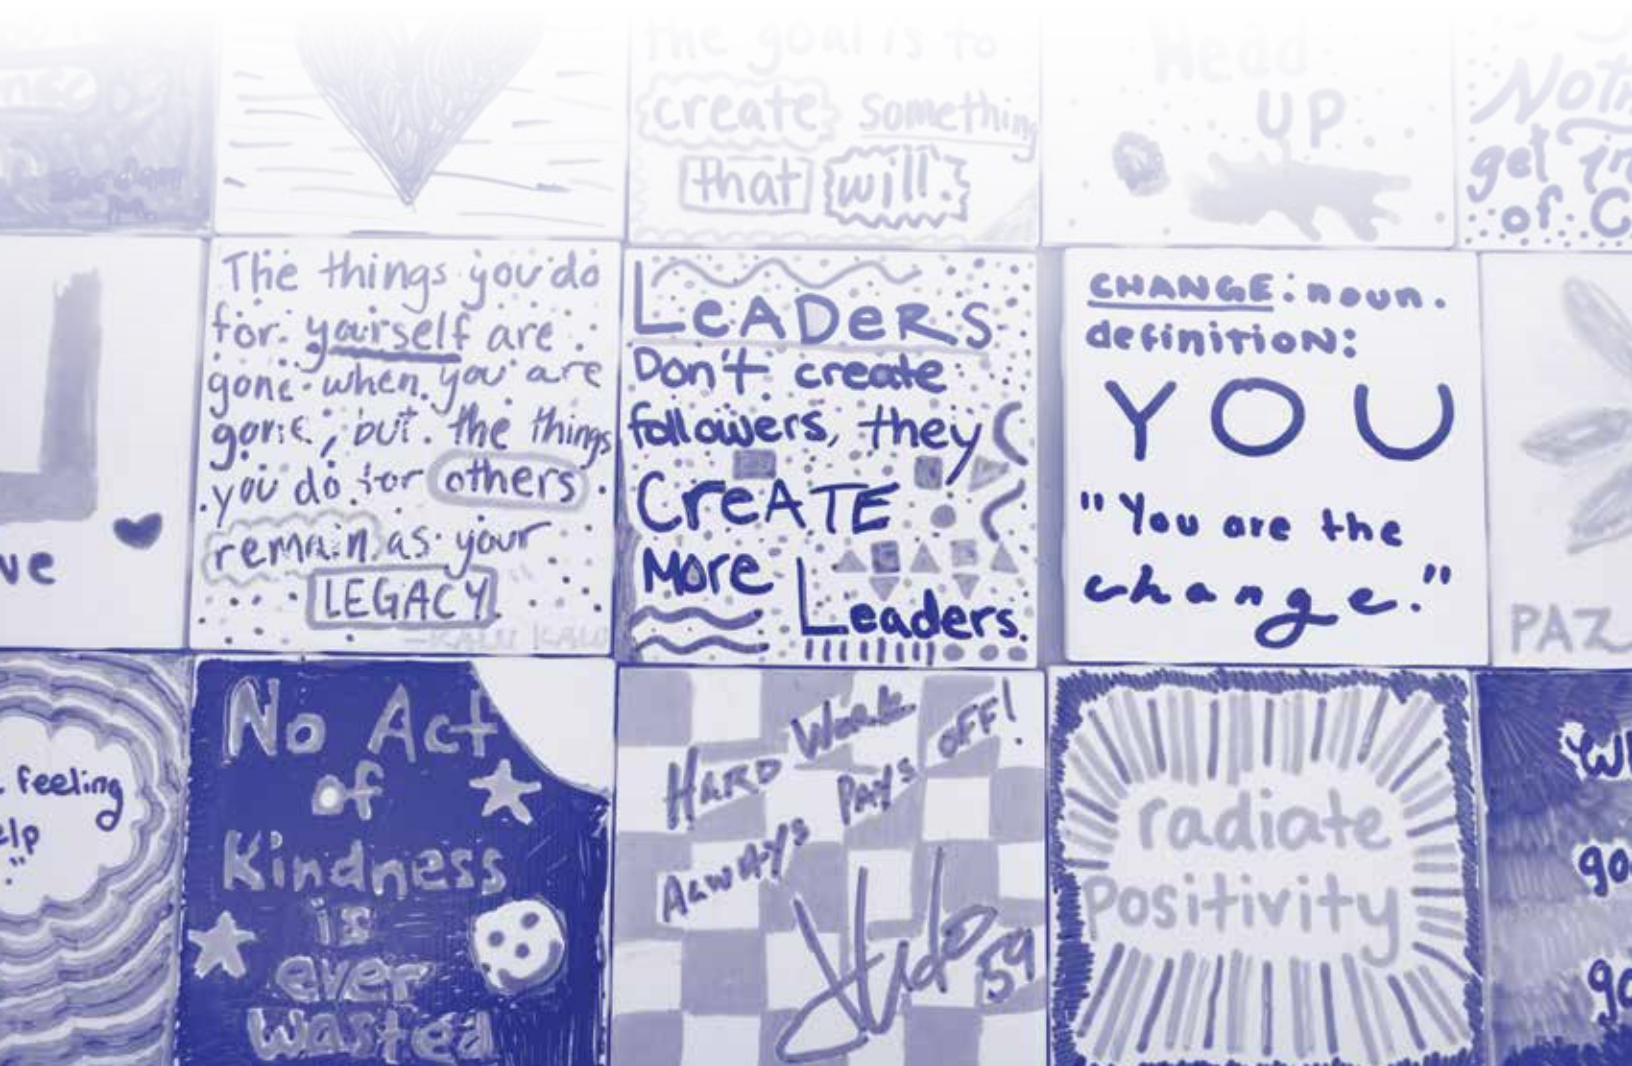 the goal is to
create something
that will.
Head
UP
get in
of C
The things you do
for yourself are
gone when you are
gone, but the things
you do for others
remain as your
LEGACY
LeADeRS
Don't create
followers, they
CreATE
More
Leaders.
CHANGE: noun.
definition:
YOU
"You are the
change."
PAZ
feeling
No Act
of
Kindness
is
ever
wasted
HARD Work
Always PAYS OFF!
59
radiate
Positivity
go
go